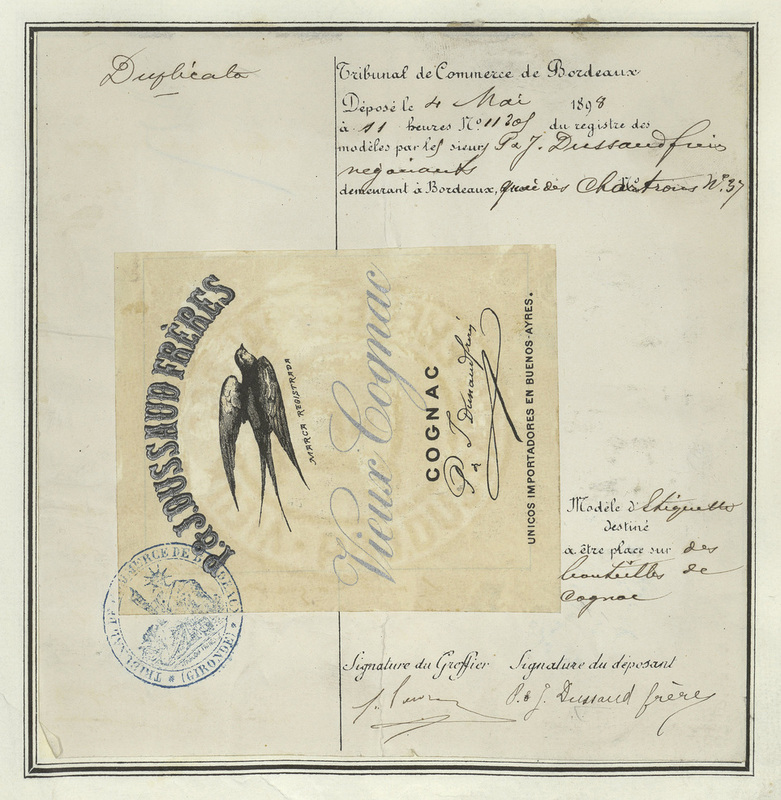 Duplicata
Tribunal de Commerce de Bordeaux
Déposé le 4 Mai 1898
à 11 heures Nº 11205 du registre des
modèles par les sieurs P & J. Dussaud frères
négociants
demeurant à Bordeaux, quai des Chartrons Nº 37
P. & J. DUSSAUD FRÈRES
MARCA REGISTRADA
Vieux Cognac
COGNAC
P & J Dussaud frères
UNICOS IMPORTADORES EN BUENOS-AYRES.
Modèle d'Etiquette
destiné
a être place sur des
bouteilles de
Cognac
TRIBUNAL DE COMMERCE DE BORDEAUX
* (GIRONDE) *
Signature du Greffier Signature du déposant
P. & J. Dussaud frères